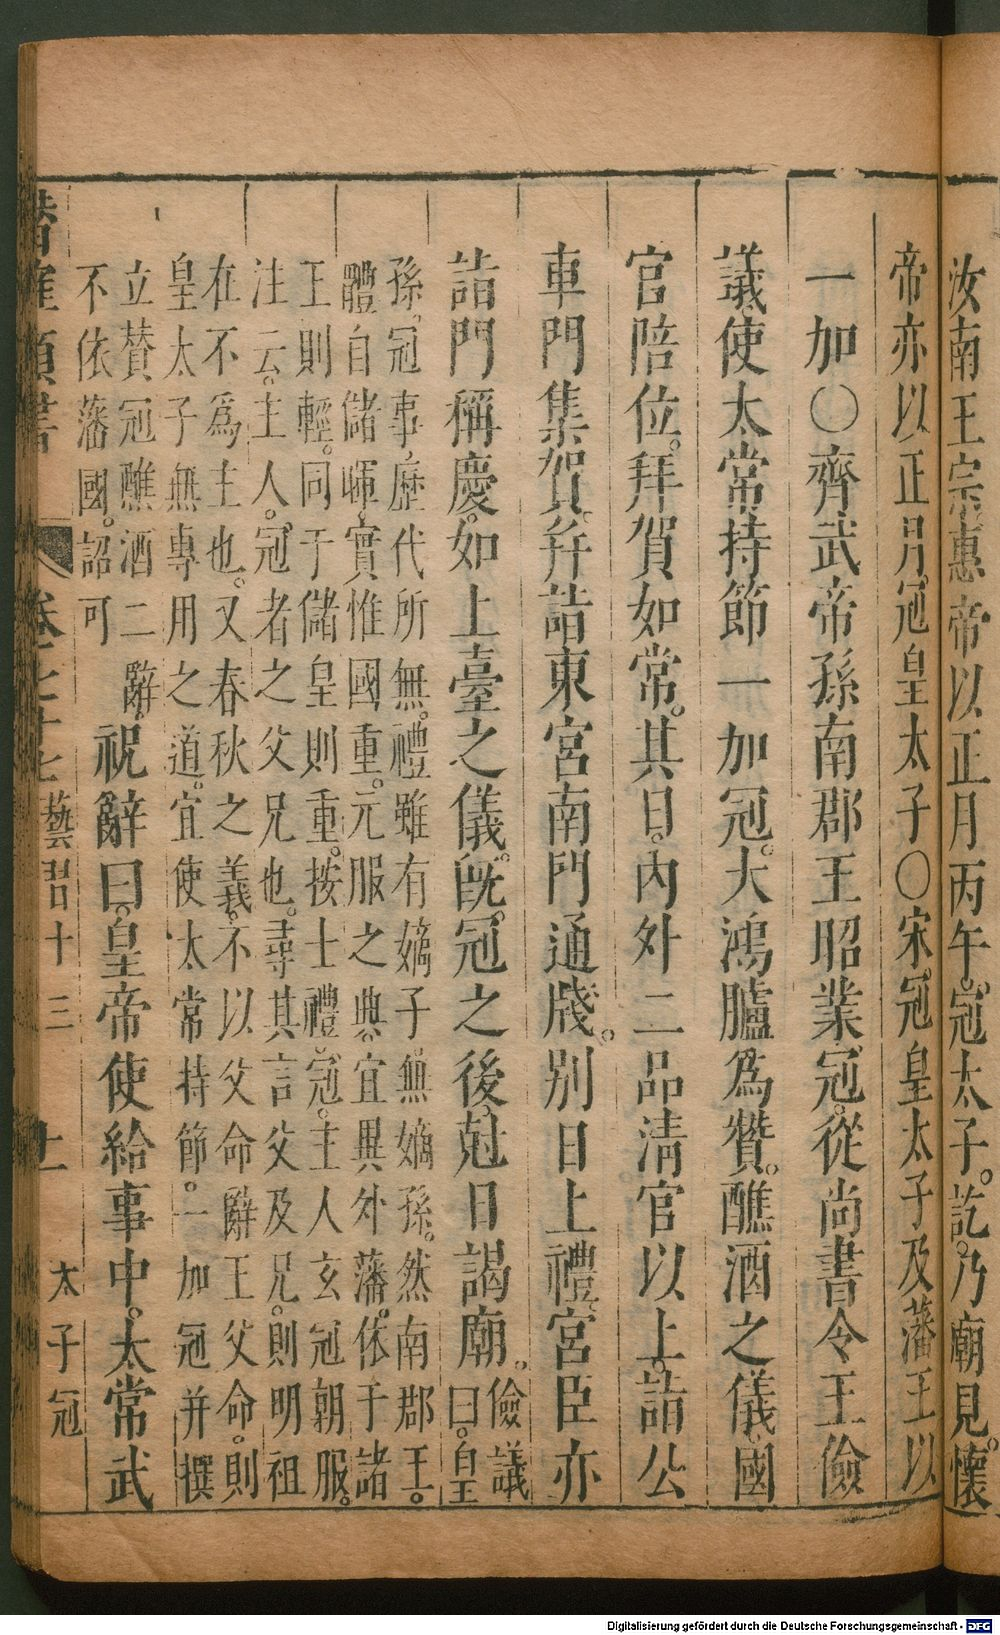 汝南王宗惠帝以正月丙午。冠太子。訖。乃廟見。懷
帝亦以正月冠皇太子〇宋冠皇太子及藩王以
一加〇齊武帝孫南郡王昭業冠。從尚書令王儉
議使太常持節一加冠。大鴻臚爲贊。醮酒之儀。國
官陪位。拜賀如常。其日。內外二品清官以上。詣公
車門集賀。幷詣東宮南門通牋。別日上禮。宮臣亦
詣門稱慶。如上臺之儀。旣冠之後。尅日謁廟。
儉議
曰。皇
孫。冠事。歷代所無。禮雖有嫡子。無嫡孫。然南郡王。
體自儲暉。實惟國重。元服之典。宜異外藩。依于諸
王則輕。同于儲皇則重。按士禮。冠。主人玄冠朝服。
注云。主人。冠者之父兄也。尋其言父及兄。則明祖
在不爲主也。又春秋之義。不以父命辭王父命。則
皇太子無專用之道。宜使太常持節。一加冠并撰
立贊冠醮酒二辭。
不依藩國。詔可
祝辭曰。皇帝使給事中。太常武
卷之七十七 藝習十三 十一 太子冠
Digitalisierung gefördert durch die Deutsche Forschungsgemeinschaft - DFG